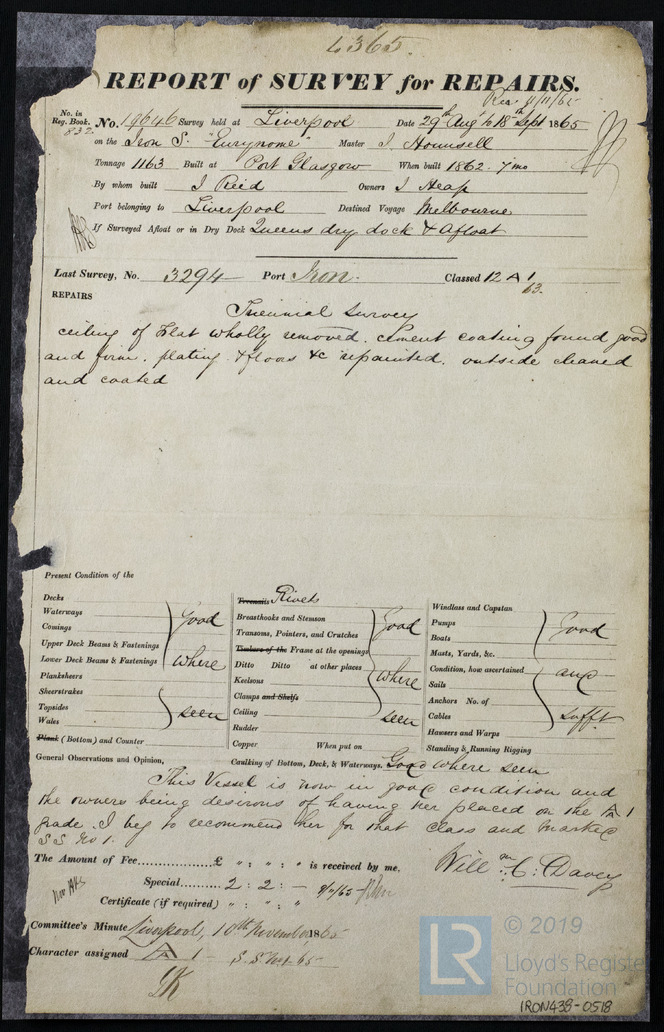 4365.
REPORT of SURVEY for REPAIRS.
Rec 8/11/65
No. in Reg. Book. 832
No. 19646 Survey held at Liverpool Date 29th Aug' to 18th Sept 1865
on the Iron S. "Eurynome" Master J. Hounsell
Tonnage 1163 Built at Port Glasgow When built 1862. 7 mo
By whom built J Reid Owners J Heap
Port belonging to Liverpool Destined Voyage Melbourne
If Surveyed Afloat or in Dry Dock Queens dry dock & afloat
Last Survey, No. 3294 Port Iron. Classed 12 A 1
63.
REPAIRS
Triennial Survey
ceiling of Flat wholly removed. cement coating found good
and firm. plating & floors &c repainted. outside cleaned
and coated
Present Condition of the
Decks
Waterways
Comings
Upper Deck Beams & Fastenings
Lower Deck Beams & Fastenings
Planksheers
Sheerstrakes
Topsides
Wales
Plank (Bottom) and Counter
Good
where
seen
Treenails Rivets
Breasthooks and Stemson
Transoms, Pointers, and Crutches
Timbers of the Frame at the openings
Ditto Ditto at other places
Keelsons
Clamps and Shelfs
Ceiling
Rudder
Copper When put on
Good
where
seen
Windlass and Capstan
Pumps
Boats
Masts, Yards, &c.
Condition, how ascertained
Sails
Anchors No. of
Cables
Hawsers and Warps
Standing & Running Rigging
Good
and
Sufft
General Observations and Opinion,
Caulking of Bottom, Deck, & Waterways. Good where seen
This Vessel is now in good condition and
the owners being desirous of having her placed on the A 1
grade. I beg to recommend her for that class and marked
S S No 1.
The Amount of Fee £ " : " : " is received by me.
Special 2 : 2 : –
Certificate (if required) " : " : "
Willm. C. Davey
Committee's Minute Liverpool, 10th November 1865
Character assigned A 1 S.S No1-65
© 2019
LR
Lloyd's Register
Foundation
IRON438-0518